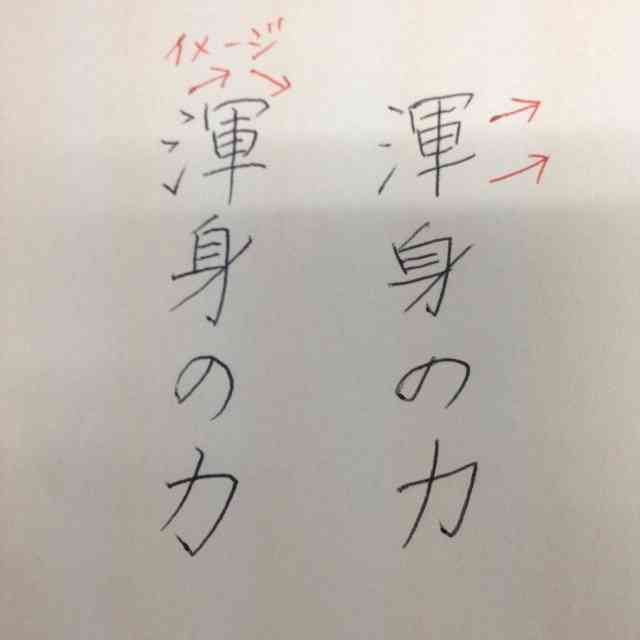 イメージ
渾身の力
渾身の力